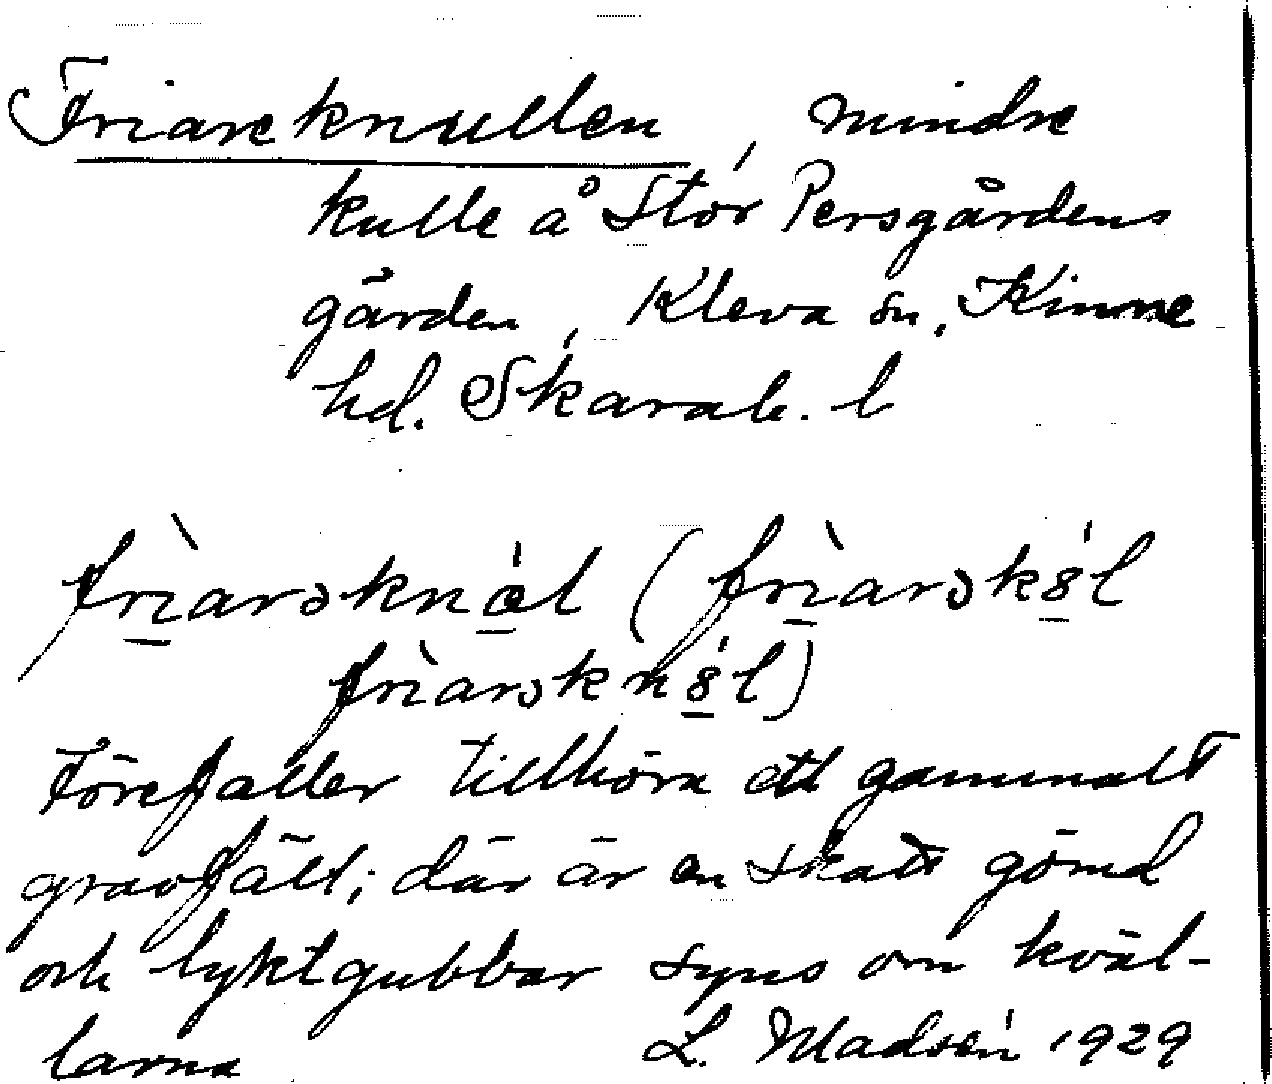 Friareknullen, mindre
kulle å Stor Persgårdens
gården, Kleva sn, Kinne
hd. Skarab. l
frìarsknǿl (frìarsk8́l
frìarskn8́l)
Förefaller tillhöra ett gammalt
gravfält; där är en skatt gömd
och lyktgubbar syns om kväl-
larna L. Madsén 1929